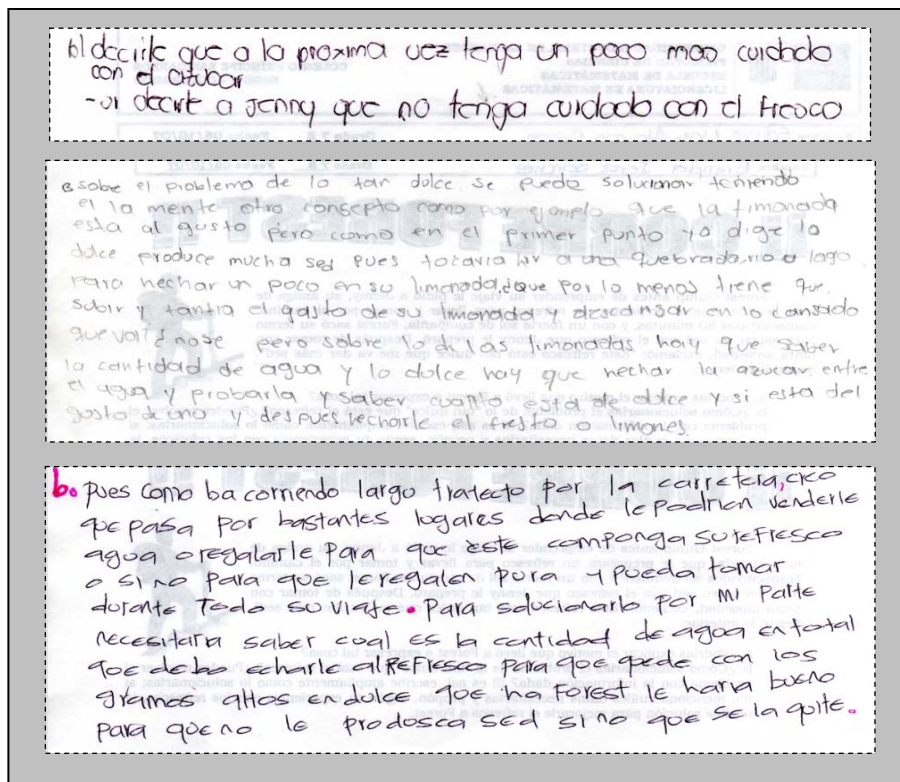 b) decirle que a la proxima vez tenga un poco mas cuidado
con el azucar
- o decirle a Jenny que no tenga cuidado con el fresco
B sobre el problema de lo tan dulce se puede solucionar teniendo
el la mente otro consepto como por ejemplo que la limonada
esta al gusto pero como en el primer punto yo dige lo
dulce produce mucha sed pues tocaria hir a una quebrada, rio o lago
para hechar un poco en su limonada, que por lo menos tiene que
subir y tantia el gasto de su limonada y descansar en lo cansado
que vaiñ nose pero sobre lo di las limonadas hay que saber
la cantidad de agua y lo dulce hay que hechar la azucar entre
el agua y probarla y saber cuanto esta de dulce y si esta del
gusto de uno y despues hecharle el fresto o limones.
b. pues como ba corriendo largo tratecto por la carretera, creo
que pasa por bastantes lugares donde le podrian venderle
agua o regalarle para que este componga su refresco
o si no para que le regalen pura y pueda tomar
durante todo su viaje. Para solucionarlo por mi parte
necesitaria saber cual es la cantidad de agua en total
que debo echarle al refresco para que pede con los
gramos altos en dulce que ha Forest le haria bueno
para que no le prodosca sed si no que se la quite.